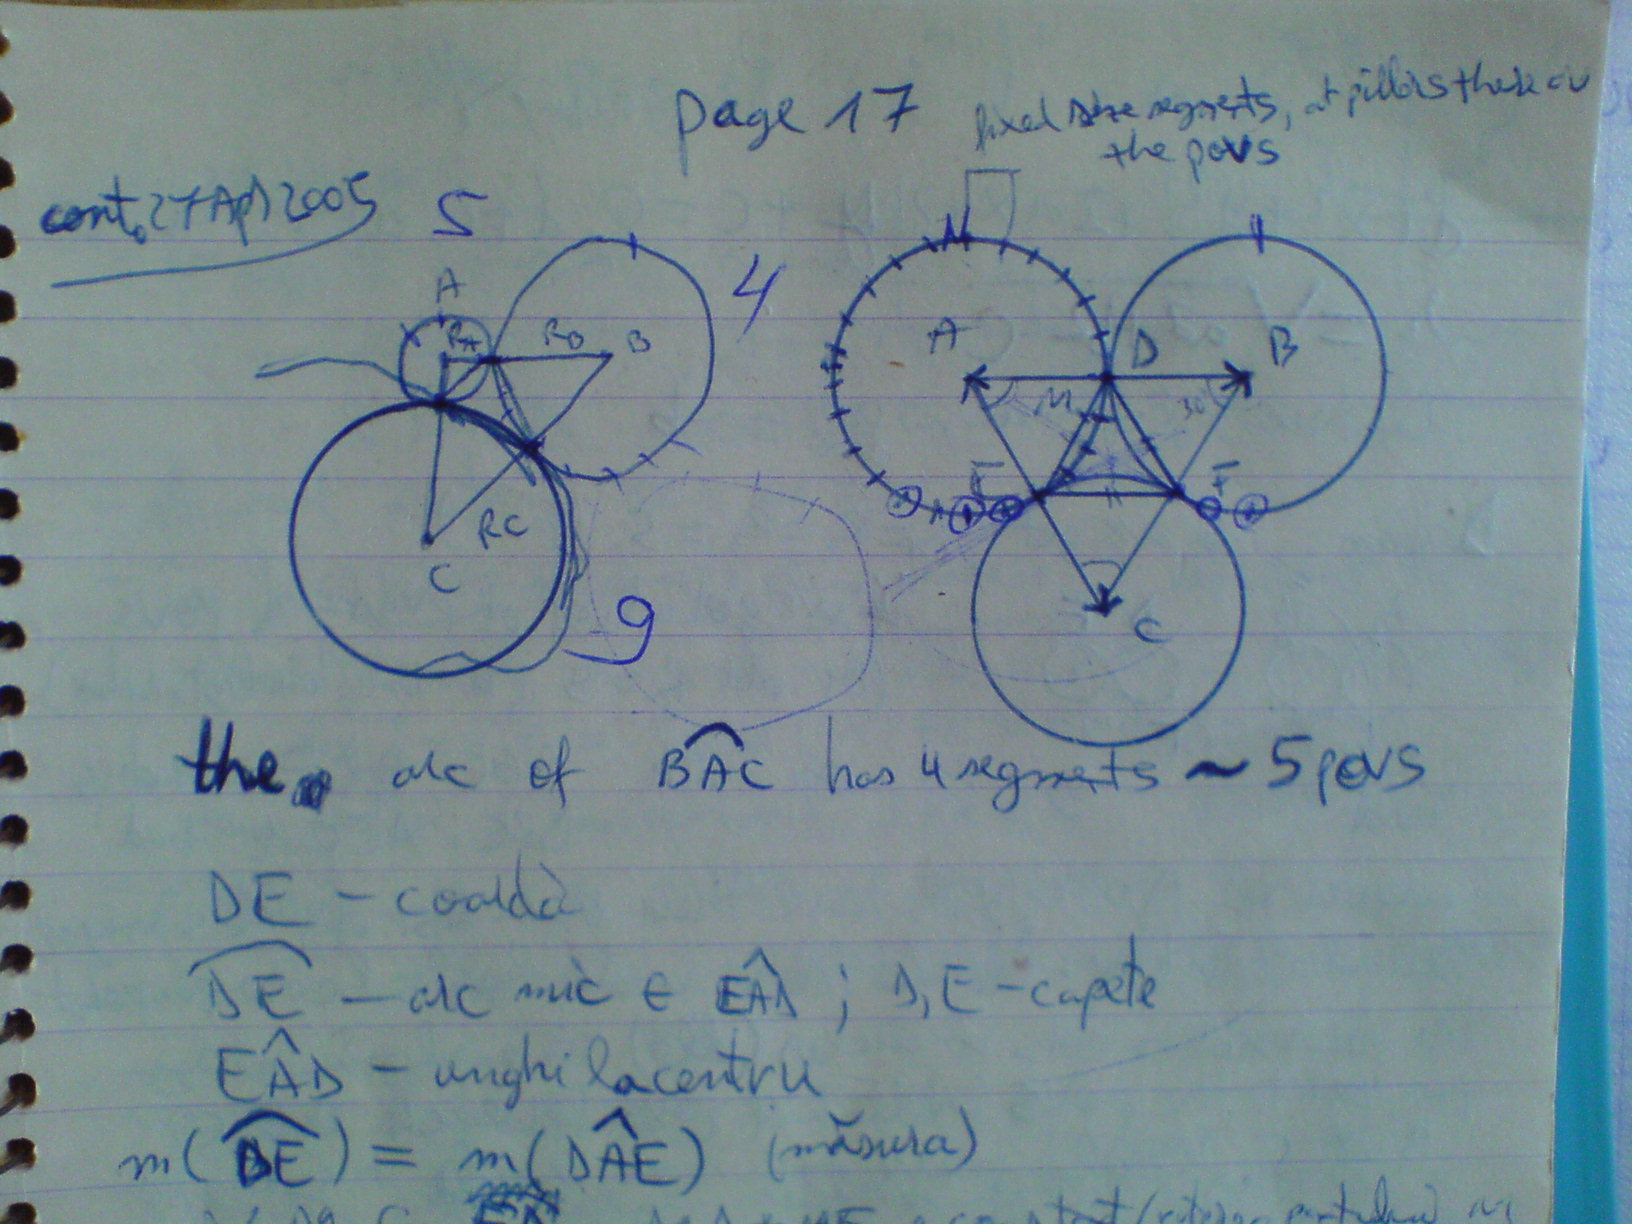 page 17
fixed size segments, at pillars there are
the povs
cont. 27 Apr 2005
5
4
A
RA
RB
B
RC
C
9
N
A
D
B
M
30°
E
F
C
the arc of BAC has 4 segments ~ 5 povs
DE - coardă
DE - arc mic ∈ EAD ; D, E - capete
EAD - unghi la centru
m(DE) = m(DAE) (măsura)